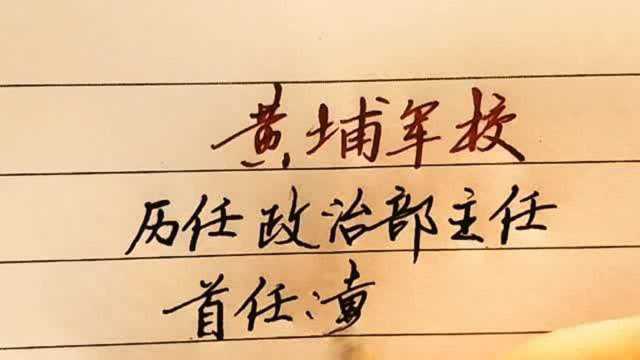 黄埔军校
历任政治部主任
首任: